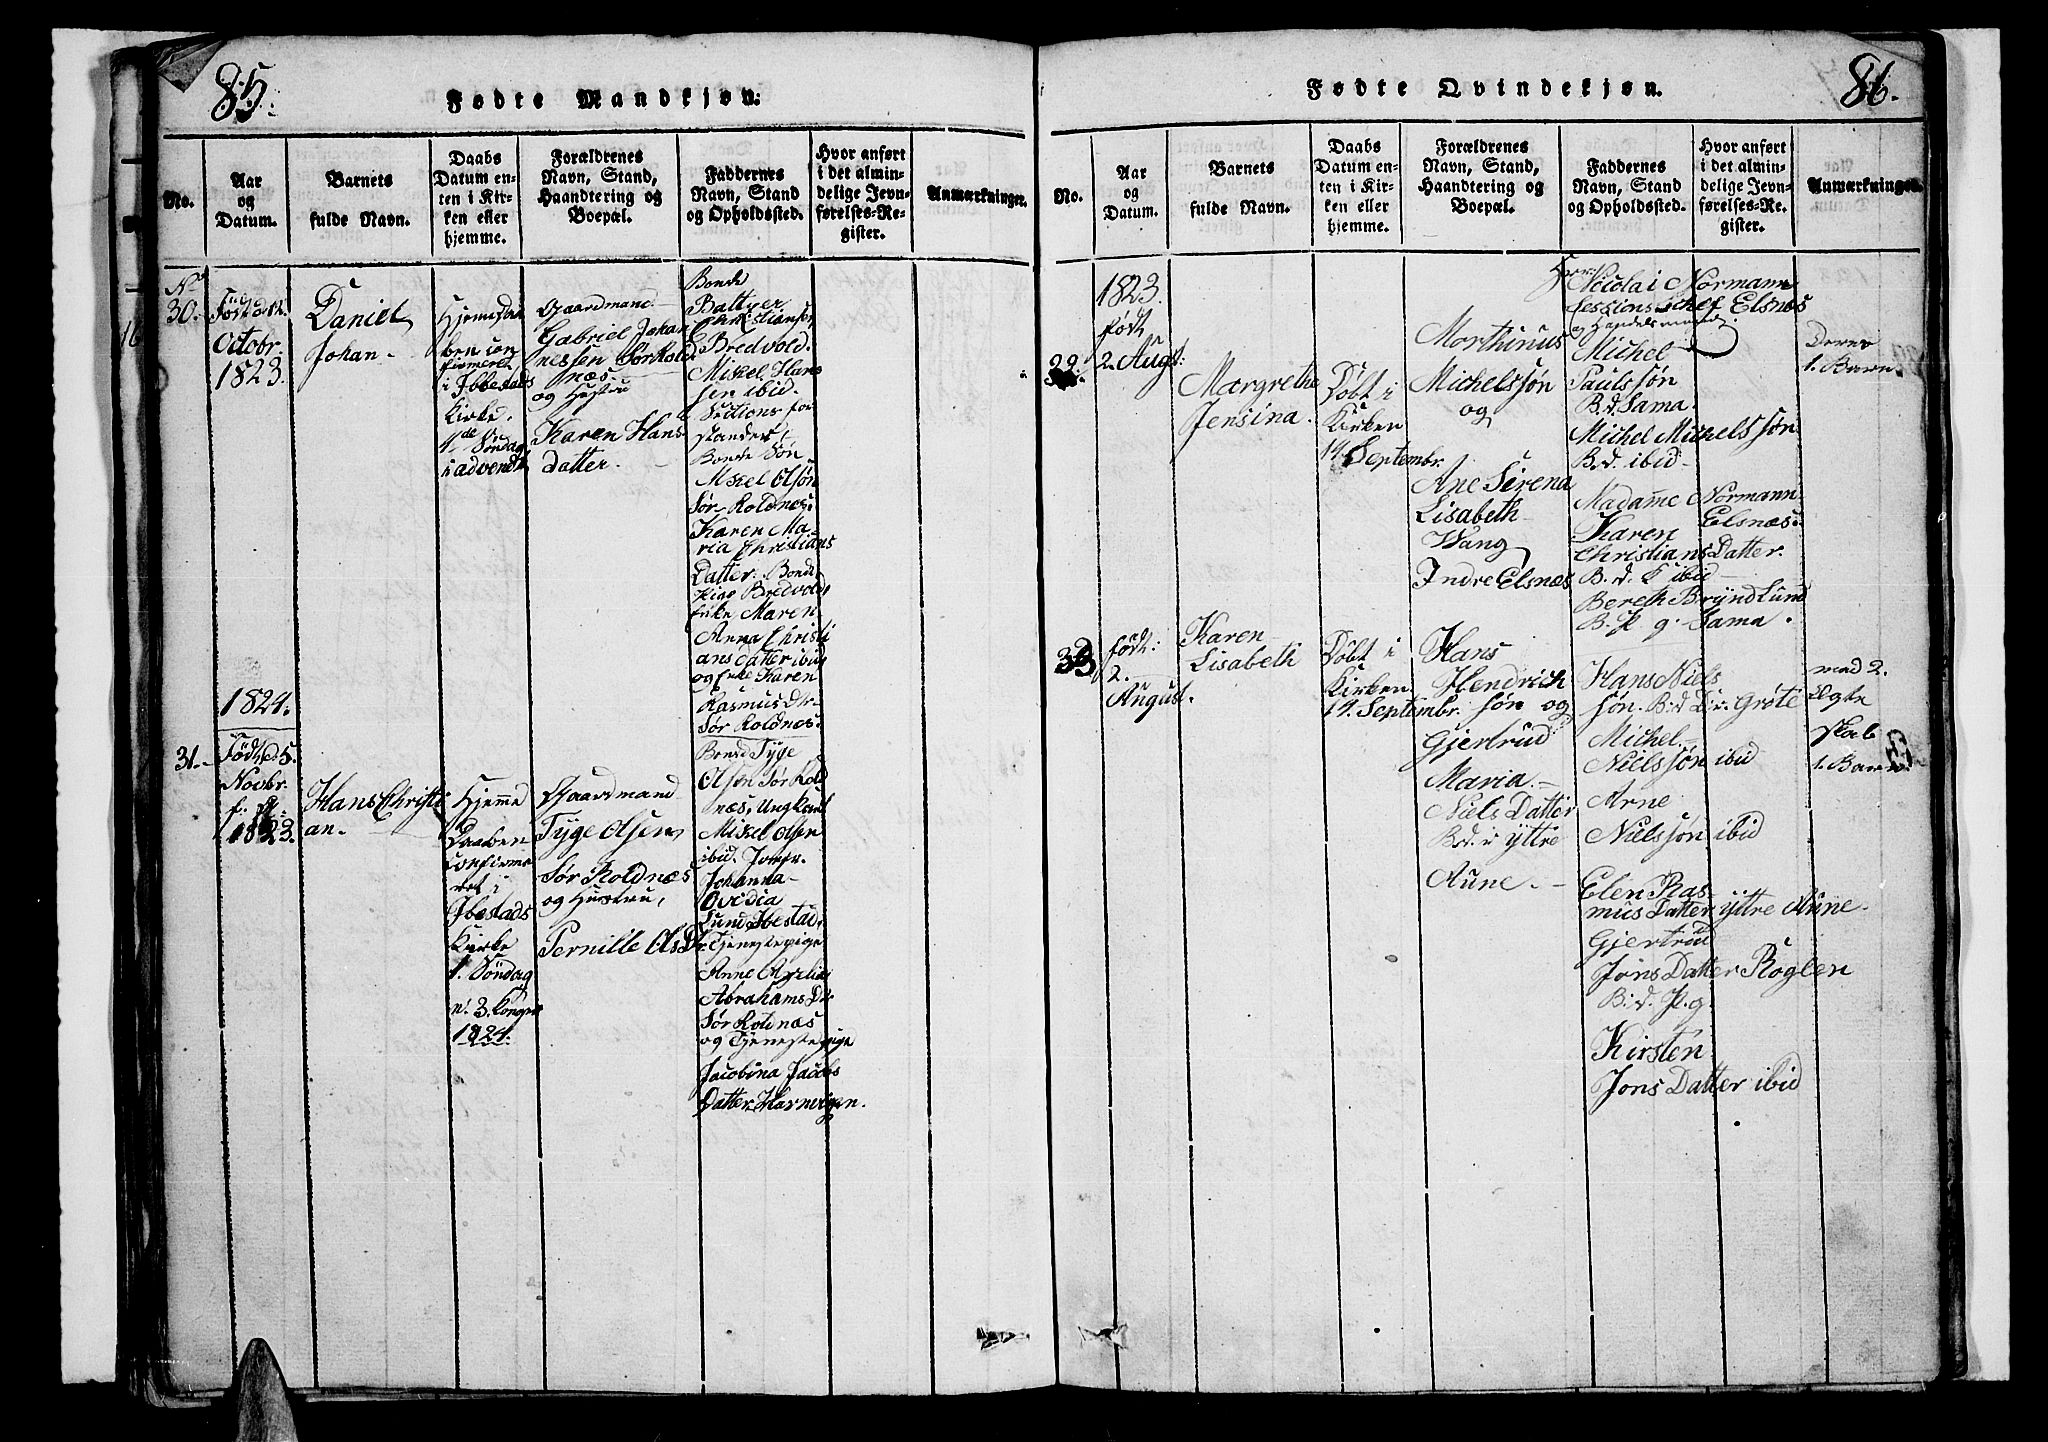 85.
Fødte Mandkjøn:
No.
Aar
og
Datum.
Barnets
fulde Navn.
Daabs
Datum en-
ten i Kir-
ken eller
hjemme.
Forældrenes
Navn, Stand,
Haandtering og
Boepæl.
Faddernes
Navn, Stand
og Opholdssted.
Hvor anført
i det almin-
delige Jevn-
førelses-Re-
gister.
Anmærkninger.
No
30.
Født d.
Octobr.
1823.
Daniel
Johan -
Hjemedaa
ben con
firmeret
i Ibbestads
Kirke.
1de Søndag
i advendt
Gaardmand
Gabriel Johan
nessen Sørrold
næs
og Hustru
Karen Hans
Datter.
Bonde
Battzer
Christiansen
Bredvold.
Mikel Hans
sen ibid.
Sections for
stander
Bonde Søn
Mikel Olsøn
Sør Roldnæs.
Karen Ma-
ria Christians
Datter. Bonde
pige Bredvold
Enke Maren
Anna Christi
ans datter ibid
og Enke Karen
Rasmus Dr.
Sør Roldnæs.
1824.
31.
Født d 5.
Novbr.
1823.
Hans Christi
an.
Hjemme
Daaben
confirme
ret i
Ibestads
Kirke
1. Søndag
n. 3. Konger
1824.
Gaardmand
Tyge Olsen
Sør Roldnæs
og Hustru,
Pernille Ols Dr.
Bonde Tyge
Olsen Sør Rold
næs. Ungkarl
Mikel Olsen
ibid. Jomfr.
Johanna
Ovidia
Lund Ibestad.
Tjenestepige
Anne
Abrahams Dr
Sør Rolnæs
og Tjenestepige
Jacobina Jacobs
Datter
86.
Fødte Qvindekjøn.
No.
Aar
og
Datum.
Barnets
fulde Navn.
Daabs
Datum en-
ten i Kir-
ken eller
hjemme.
Forældrenes
Navn, Stand,
Haandtering og
Boepæl.
Faddernes
Navn, Stand
og Opholdssted.
Hvor anført
i det almin-
delige Jevn-
førelses-Re-
gister.
Anmærkninger.
1823.
født
2. Augst:
Margrethe
Jensina.
Døbt i
Kirken
14 Septembr.
Morthinus
Michelssøn
og
Ane Serena
Lisabeth
Wang
Indre Elsnæs
Herr Nicolai Normann
Sessions Schef Elsnæs
og Handelsmand
Michel
Paulssøn
B.d. Sama.
Michel Michelssøn
B.d. ibid
Madamme Normann
Elsnæs.
Karen
Christians Datter.
B.d. K ibid
Bereth Bryndlund
B. P g. Sama.
Deres
1. Barn
33
født:
2.
August.
Karen
Lisabeth
Døbt i
Kirken
14. Septembr.
Hans
Hendrich
søn og
Gjertrud
Maria
Niels Datter
B.d. i yttre
Aune.
Hans Niels
søn. B:d L:v. Grøte
Michel
Nielssøn ibid
Arne
Nielssøn ibid
Elen Ras-
mus Datter yttre Aune
Gjertrud
Jons Datter Roglen
B:d. P.g.
Kirsten
Jons Datter ibid
med 2.
Ægte
skab
1. Barn